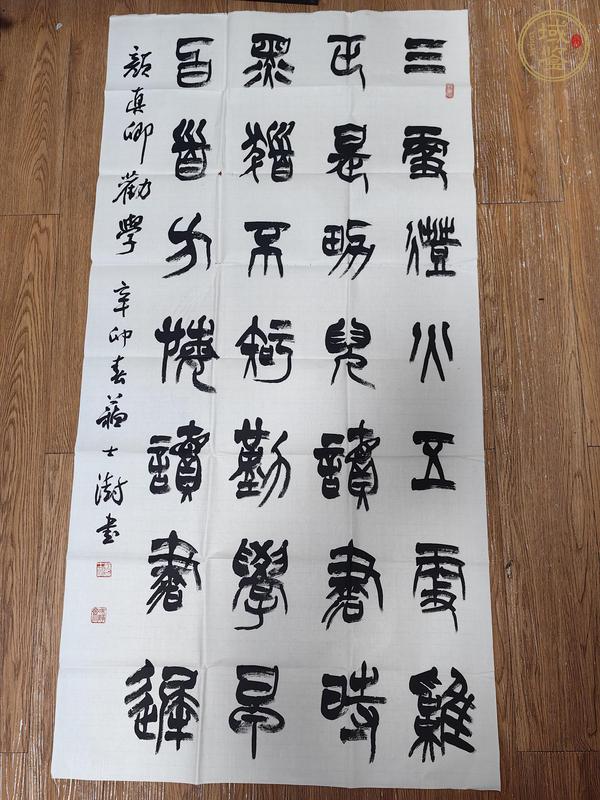 三更燈火五更雞
正是男兒讀書時
黑髮不知勤學早
白首方悔讀書遲
顏真卿勸學 辛卯春蘇士澍書